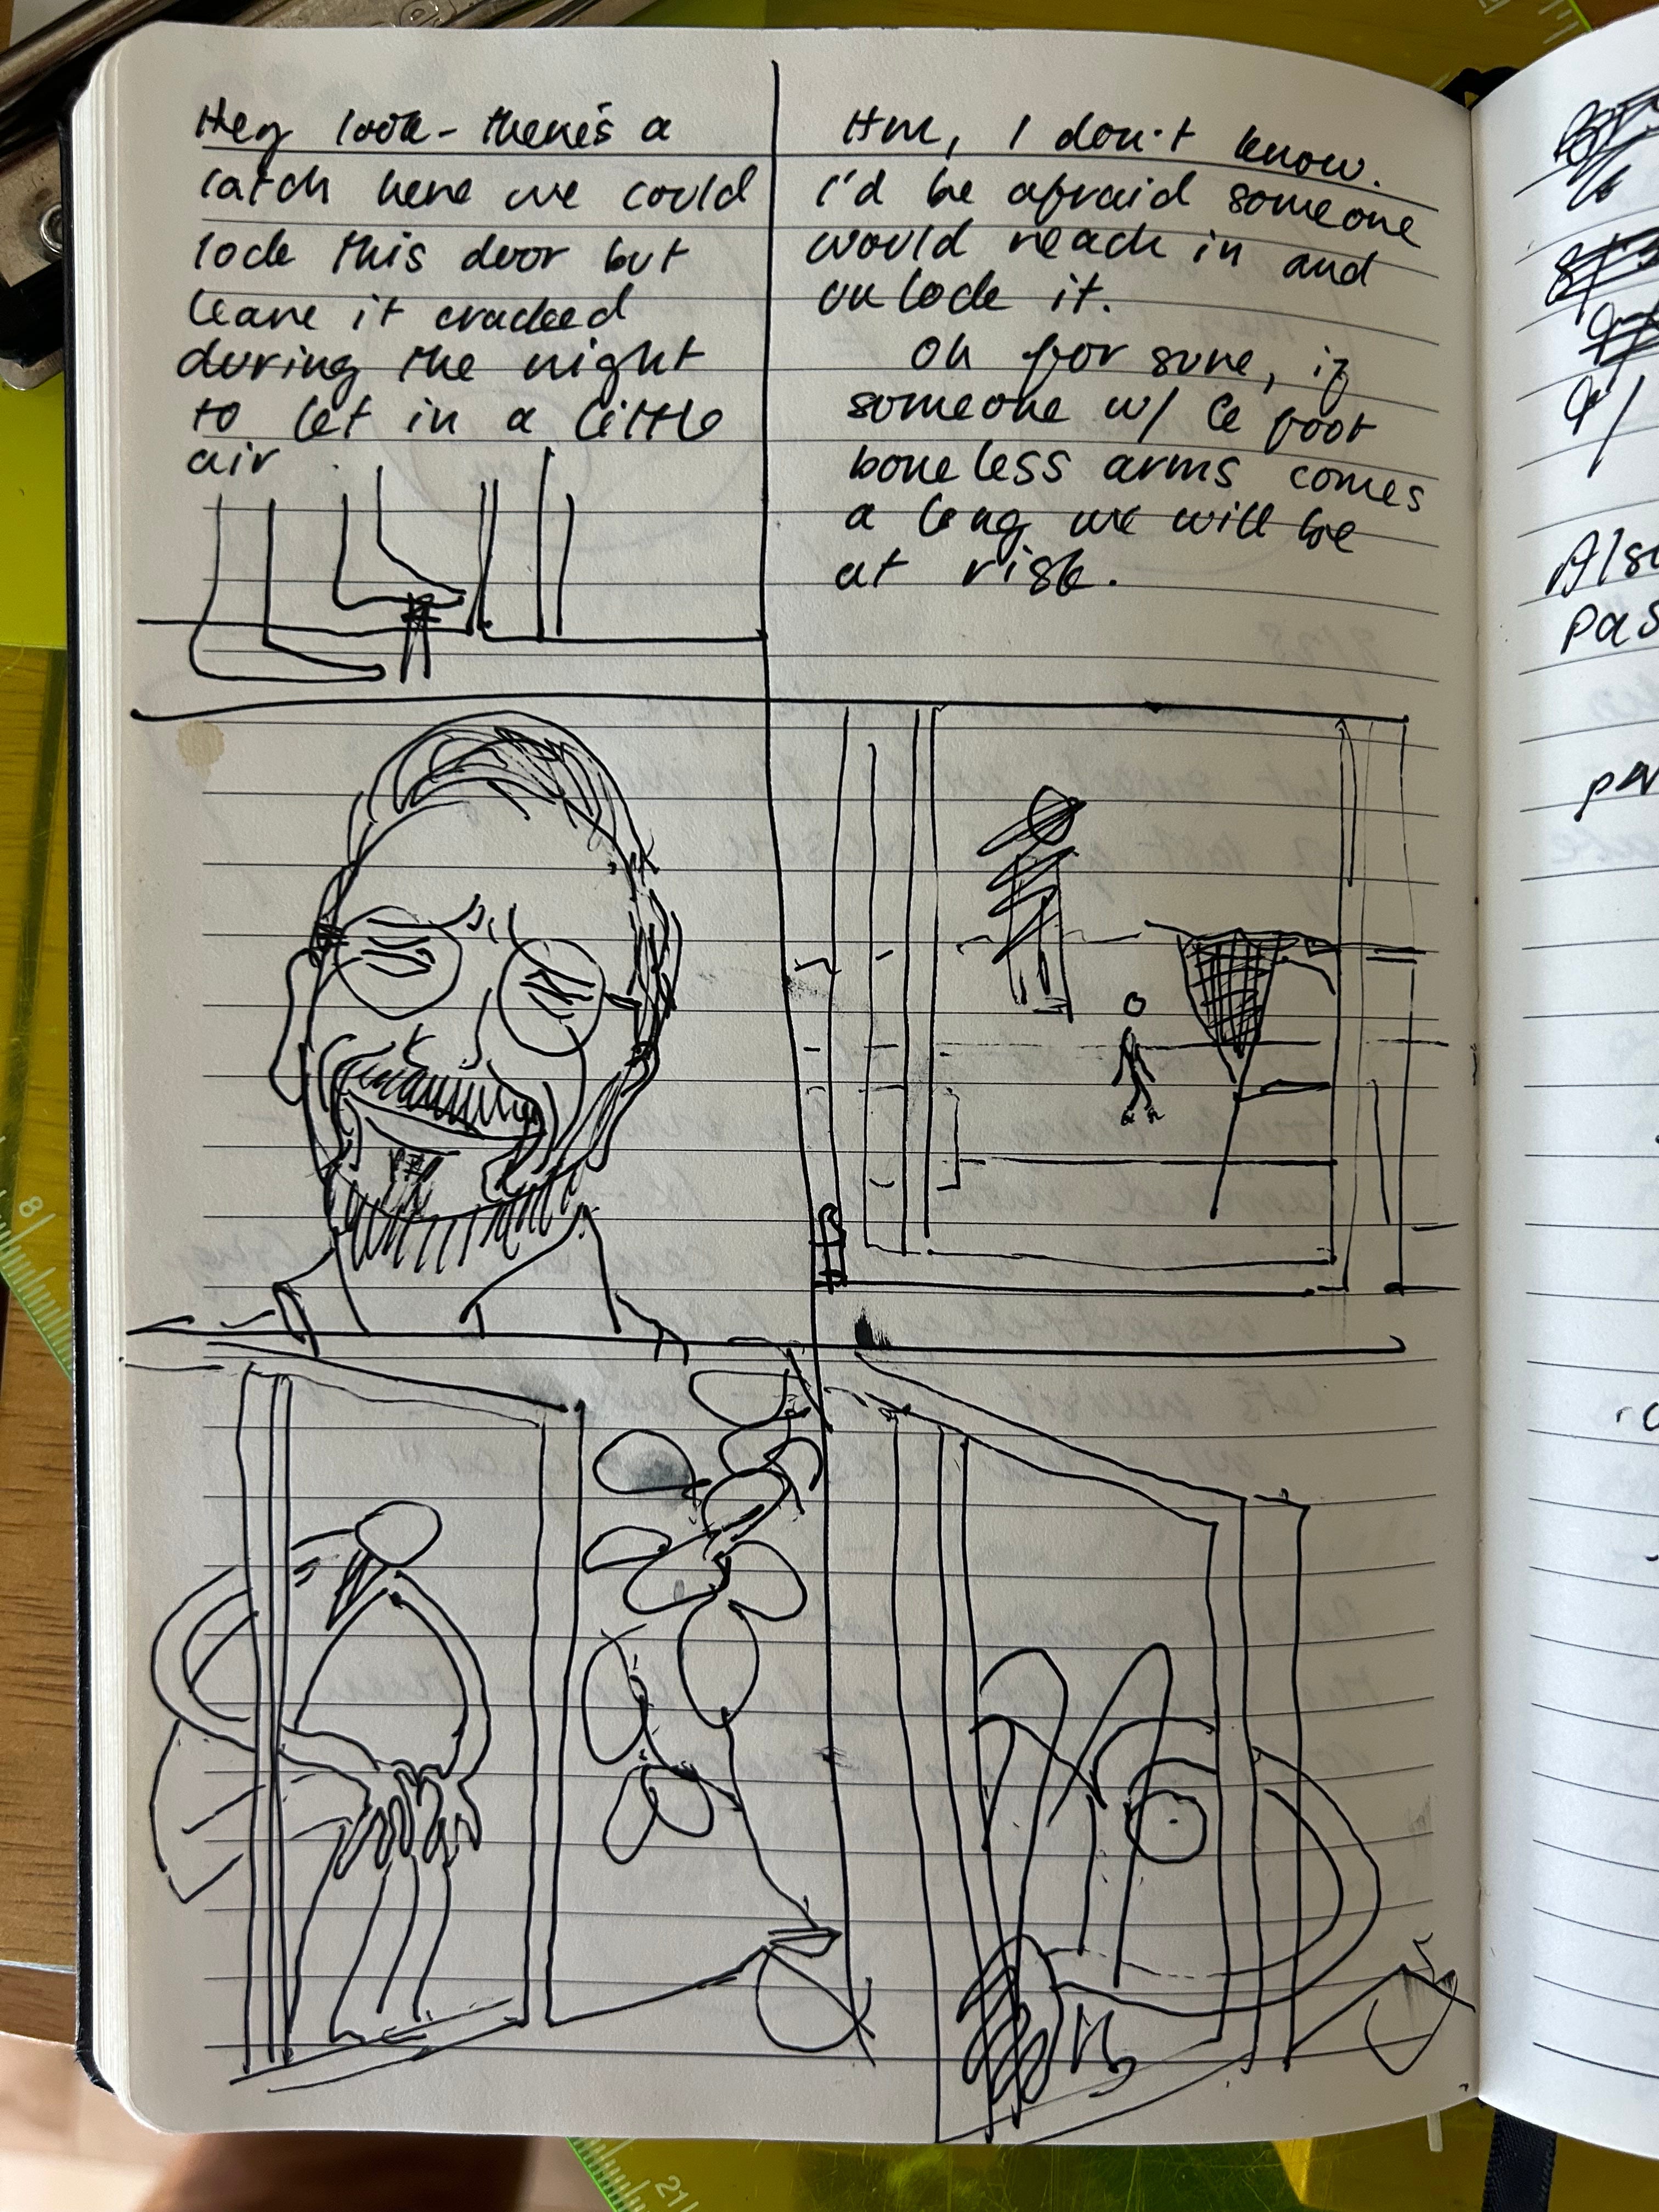 Hey look - there's a
latch here we could
lock this door but
leave it cracked
during the night
to let in a little
air.
Hm, I don't know.
I'd be afraid someone
would reach in and
unlock it.
Oh for sure, if
someone w/ 6 foot
boneless arms comes
a long we will be
at risk.
Also
pas
8
21